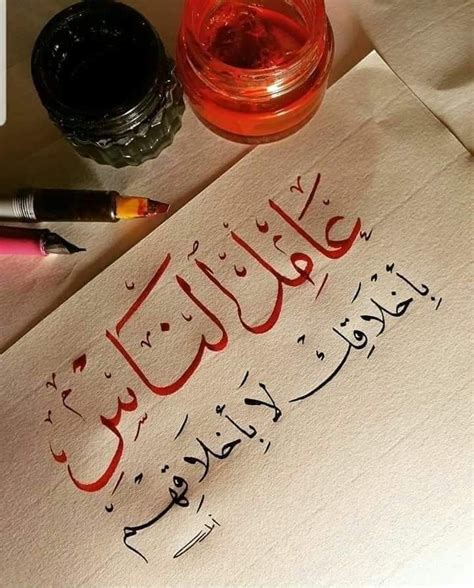 عَامِل النَاسِ
بِأخْلَاقِك لَا بِأخلَاقِهْم